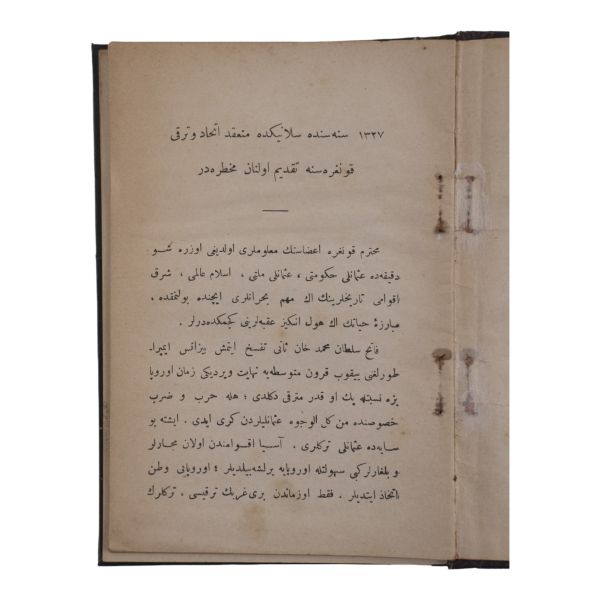 ١٣٢٧ سنه‌سنده سلانيكده منعقد اتحاد و ترقى
قونغره‌سنه تقديم اولنان مخطره‌در
محترم قونغره اعضاسنك معلوملرى اولديغى اوزره شو
دقيقه‌ده عثمانلى حكومتى ، عثمانلى ملتى ، اسلام عالمى ، شرق
اقوامى تاريخلرينك اك مهم بحرانلرى ايچنده بولنمقده ،
مبارزۀ حياتك اك هول انكيز عقبه‌لرينى كچمكده‌درلر .
فاتح سلطان محمد خان ثانى تفسخ ايتمش بيزانس ايمپرا-
طورلغنى ييقوب قرون متوسطه‌يه نهايت ويرديكى زمان اوروپا
بزه نسبتله پك او قدر مترقى دكلدى ؛ هله حرب و ضرب
خصوصنده من كل الوجوه عثمانليلردن كرى ايدى . ايشته بو
سايه‌ده عثمانلى تركلرى . آسيا اقوامندن اولان مجارلر
و بلغارلر كبى سهولتله اوروپايه يرلشه‌بيلديلر ؛ اوروپايى وطن
اتخاذ ايتديلر . فقط اوزماندن برى غربك ترقيسى ، تركلرك